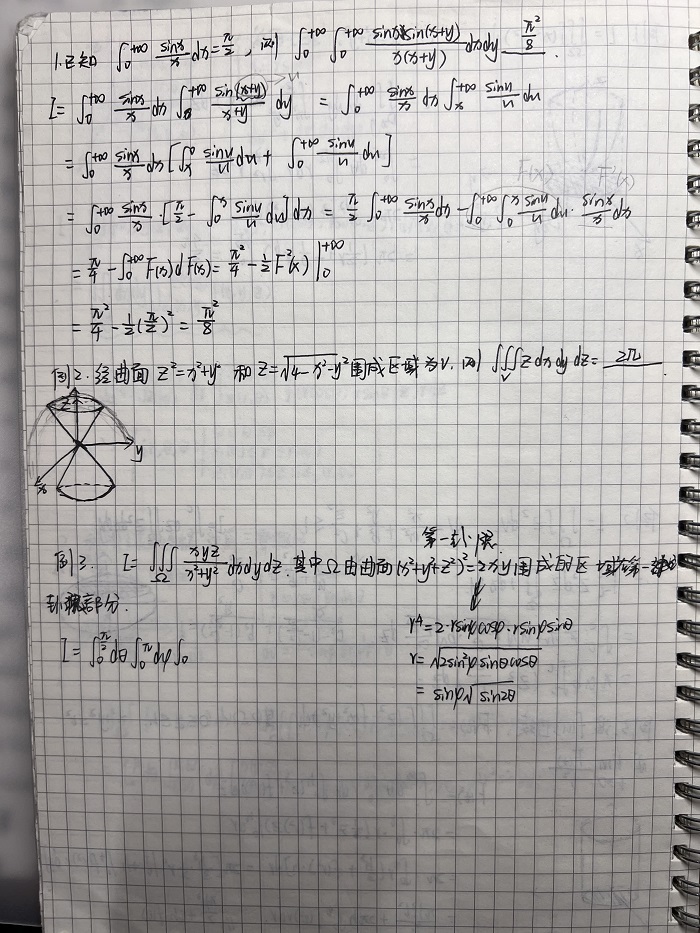 1.已知 ∫₀^{+∞} sinx/x dx = π/2, 则 ∫₀^{+∞} ∫₀^{+∞} sinx sin(x+y)/x(x+y) dxdy π²/8.
I = ∫₀^{+∞} sinx/x dx ∫₀^{+∞} sin(x+y)/x+y dy = ∫₀^{+∞} sinx/x dx ∫ₓ^{+∞} sinu/u du
u
= ∫₀^{+∞} sinx/x dx [∫ₓ⁰ sinu/u du + ∫₀^{+∞} sinu/u du]
= ∫₀^{+∞} sinx/x · [π/2 - ∫₀ˣ sinu/u du] dx = π/2 ∫₀^{+∞} sinx/x dx - ∫₀^{+∞} ∫₀ˣ sinu/u du · sinx/x dx
= π²/4 - ∫₀^{+∞} F(x) dF(x) = π²/4 - 1/2 F²(x) |₀^{+∞}
= π²/4 - 1/2 (π/2)² = π²/8
例2. 曲面 z²=x²+y² 和 z=√(4-x²-y²) 围成区域为V, 则 ∭_V z dxdydz = 2π.
z
y
x
第一卦限
例3. I = ∭_Ω xyz/x²+y² dxdydz. 其中Ω由曲面(x²+y²+z²)²=2xy围成的区域在第一
卦限部分.
r⁴ = 2·rsinφcosθ·rsinφsinθ
I = ∫₀^{π/2} dθ ∫₀^π dφ ∫₀
r = √(2sin²φsinθcosθ)
= sinφ√(sin2θ)